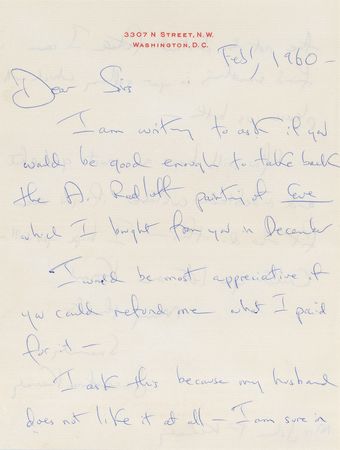 3307 N STREET, N.W.
WASHINGTON, D.C.
Feb 1, 1960 –
Dear Sirs
I am writing to ask if you
would be good enough to take back
the A. painting of Eve
which I bought from you in December
I would be most appreciative if
you could refund me what I paid
for it –
I ask this because my husband
does not like it at all – I am sure in